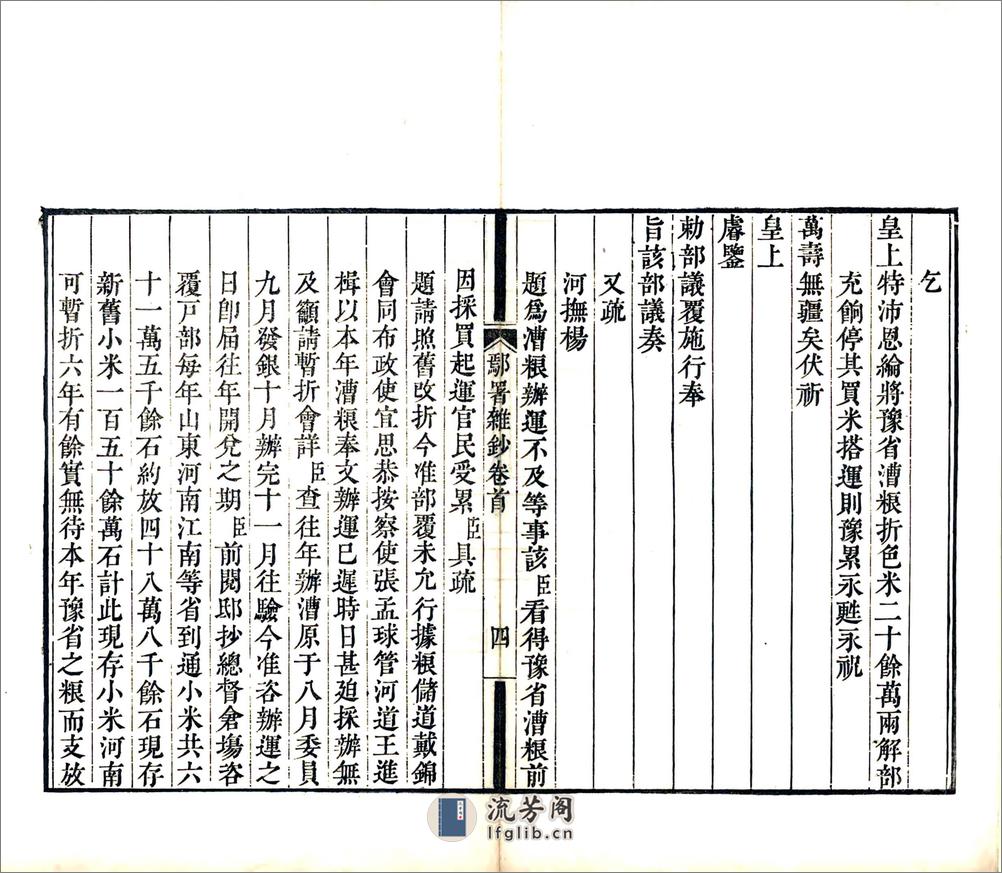 乞
皇上特沛恩綸將豫省漕粮折色米二十餘萬兩解部
充餉停其買米搭運則豫累永甦永祝
萬壽無疆矣伏祈
皇上
睿鑒
勅部議覆施行奉
旨該部議奏
又疏
河撫楊
題爲漕粮辦運不及等事該臣看得豫省漕粮前
鄢署雜鈔卷首
四
因採買起運官民受累臣具疏
題請照舊改折今准部覆未允行據粮儲道戴錦
會同布政使宜思恭按察使張孟球管河道王進
楫以本年漕粮奉文辦運已遲時日甚迫採辦無
及籲請暫折會詳臣查往年辦漕原于八月委員
九月發銀十月辦完十一月往驗今准咨辦運之
日卽屆往年開兌之期臣前閱邸抄總督倉塲咨
覆戸部每年山東河南江南等省到通小米共六
十一萬五千餘石約放四十八萬八千餘石現存
新舊小米一百五十餘萬石計此現存小米河南
可暫折六年有餘實無待本年豫省之粮而支放
流芳阁
lfglib.cn